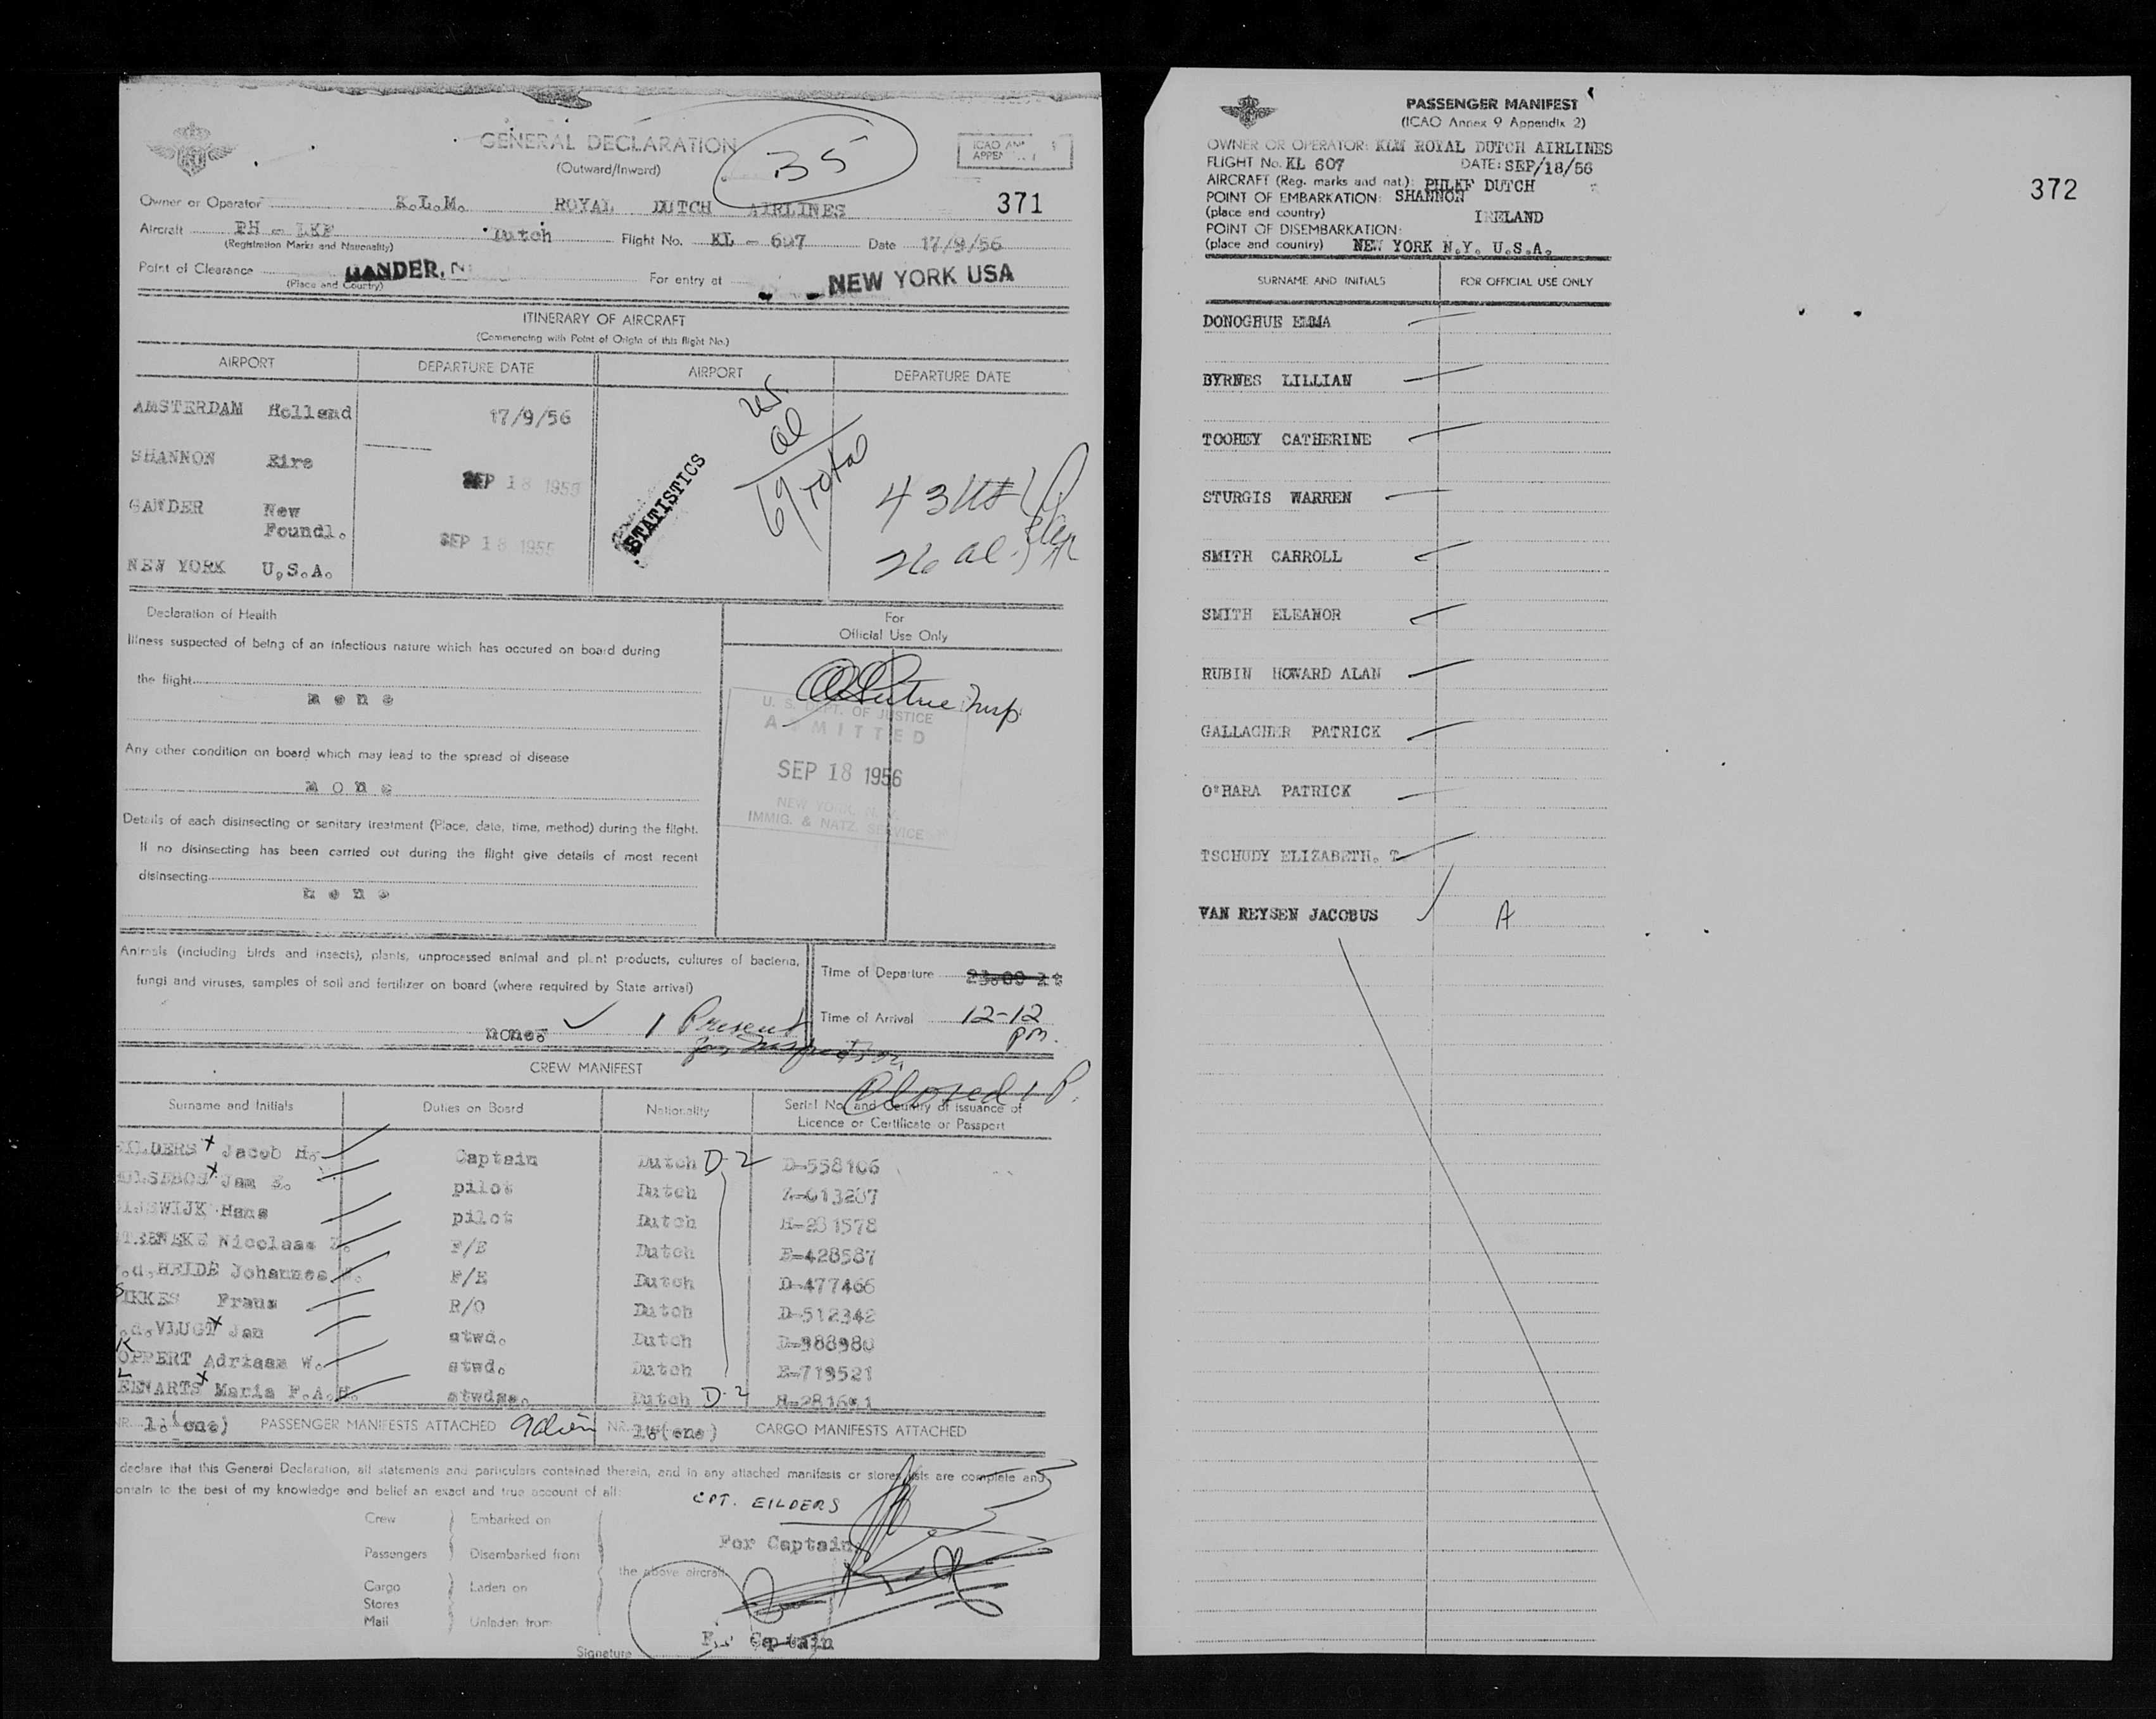 GENERAL DECLARATION
(Outward/Inward)
35
ICAO
Owner or Operator K.L.M. ROYAL DUTCH AIRLINES
371
Aircraft PH - LKF Dutch Flight No. KL - 607 Date 17/9/56
(Registration Marks and Nationality)
Point of Clearance GANDER, N For entry at NEW YORK USA
(Place and Country)
ITINERARY OF AIRCRAFT
(Commencing with Point of Origin of this flight No.)
AIRPORT DEPARTURE DATE AIRPORT DEPARTURE DATE
AMSTERDAM Holland 17/9/56
SHANNON Eire SEP 18 1956
GANDER New Foundl. SEP 18 1956
NEW YORK U.S.A.
STATISTICS
al
69 Total
43 US
26 al.
Declaration of Health
Illness suspected of being of an infectious nature which has occured on board during
the flight
none
Any other condition on board which may lead to the spread of disease
none
Details of each disinsecting or sanitary treatment (Place, date, time, method) during the flight.
If no disinsecting has been carried out during the flight give details of most recent
disinsecting
none
For
Official Use Only
Insp
U. S. DEPT. OF JUSTICE
ADMITTED
SEP 18 1956
NEW YORK, N. Y.
IMMIG. & NATZ. SERVICE
Animals (including birds and insects), plants, unprocessed animal and plant products, cultures of bacteria,
fungi and viruses, samples of soil and fertilizer on board (where required by State arrival)
none
1 Present
for Inspection
Time of Departure 23.00
Time of Arrival 12-12 pm.
Closed 1 P.
CREW MANIFEST
Surname and Initials Duties on Board Nationality Serial No. and Country of issuance of
Licence or Certificate or Passport
EILDERS Jacob H. Captain Dutch D-2 D-558106
Jan pilot Dutch
Hans pilot Dutch H-231578
Nicolaas F/E Dutch E-428587
.d.HEIDE Johannes F/E Dutch D-477466
SIKKES Frans R/O Dutch D-512342
.d.VLUGT Jan stwd. Dutch D-988980
KOPPERT Adriaan W. stwd. Dutch E-719521
LEENARTS Maria F.A.H. stwdss. Dutch D-2
NR. 1. (one) PASSENGER MANIFESTS ATTACHED 9 alien NR. (one) CARGO MANIFESTS ATTACHED
declare that this General Declaration, all statements and particulars contained therein, and in any attached manifests or stores lists are complete and
ontain to the best of my knowledge and belief an exact and true account of all:
CPT. EILDERS
Crew Embarked on
For Captain
Passengers Disembarked from
the above aircraft
Cargo Laden on
Stores
Mail Unladen from
For Captain
Signature
PASSENGER MANIFEST
(ICAO Annex 9 Appendix 2)
OWNER OR OPERATOR: KLM ROYAL DUTCH AIRLINES
FLIGHT No. KL 607 DATE: SEP/18/56
AIRCRAFT (Reg. marks and nat.): PHLKF DUTCH
372
POINT OF EMBARKATION: SHANNON
(place and country) IRELAND
POINT OF DISEMBARKATION:
(place and country) NEW YORK N.Y. U.S.A.
SURNAME AND INITIALS FOR OFFICIAL USE ONLY
DONOGHUE EMMA
BYRNES LILLIAN
TOOHEY CATHERINE
STURGIS WARREN
SMITH CARROLL
SMITH ELEANOR
RUBIN HOWARD ALAN
GALLAGHER PATRICK
O'HARA PATRICK
TSCHUDY ELIZABETH. T
VAN REYSEN JACOBUS A